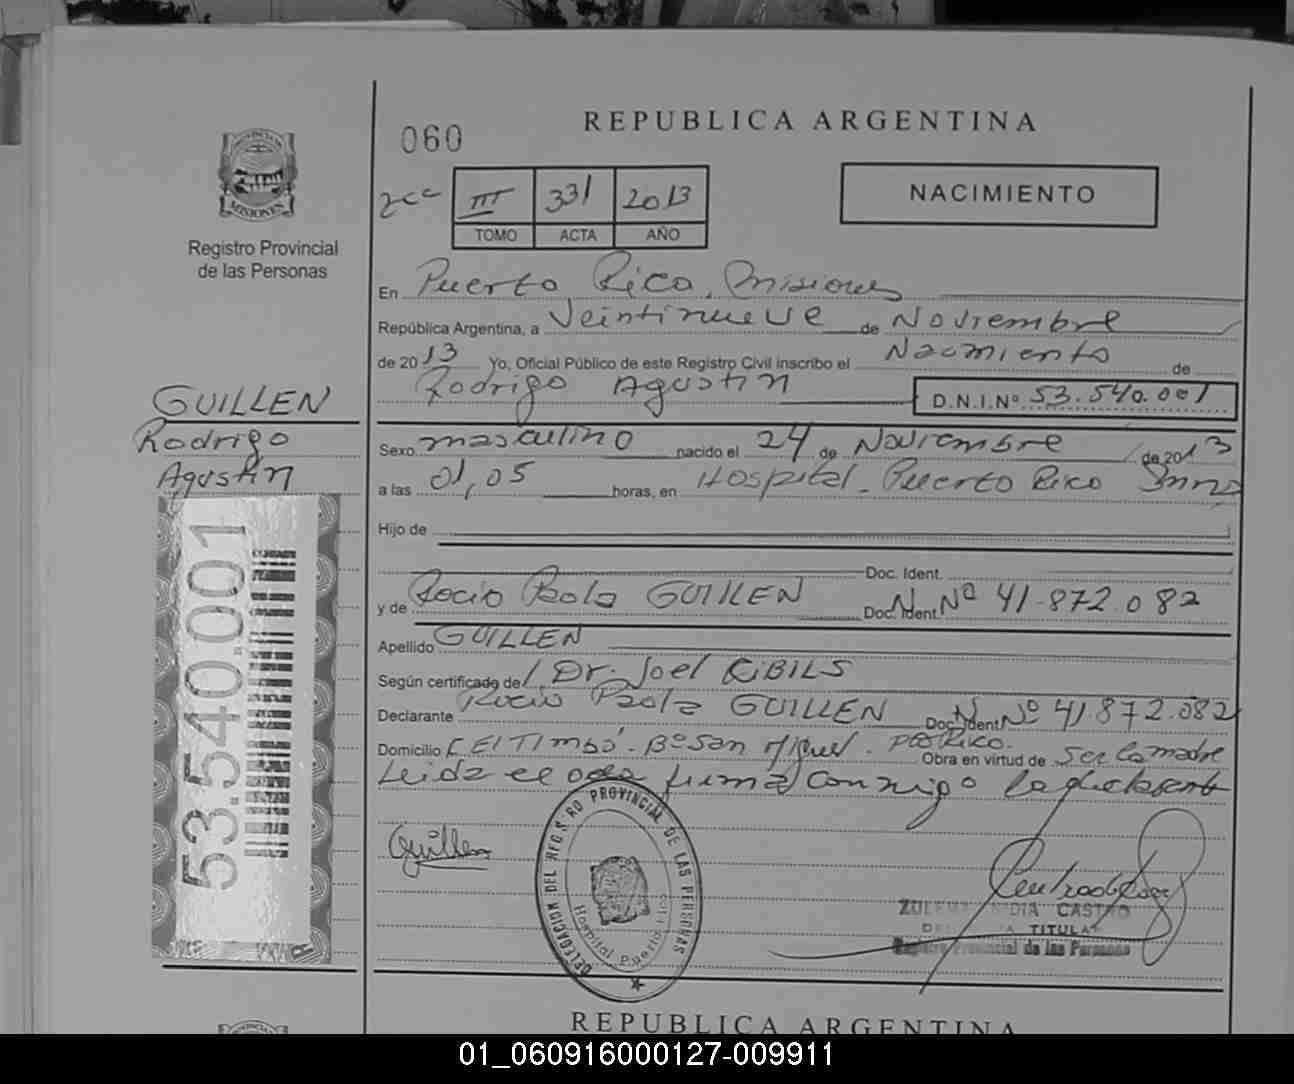 REPUBLICA ARGENTINA
060
PROVINCIA
MISIONES
Registro Provincial
de las Personas
III 331 2013
TOMO ACTA AÑO
NACIMIENTO
En Puerto Rico, Misiones
República Argentina, a Veintinueve de Noviembre
de 2013 Yo, Oficial Público de este Registro Civil inscribo el Nacimiento de
Rodrigo Agustin D.N.I.Nº 53.540.001
GUILLEN
Rodrigo
Agustin
53.540.001
Sexo masculino nacido el 24 de Noviembre de 2013
a las 01,05 horas, en Hospital - Puerto Rico
Hijo de
Doc. Ident.
y de Rocio Paola GUILLEN Doc. Ident. Nº 41.872.082
Apellido GUILLEN
Según certificado de Dr. Joel RIBILS
Declarante Rocio Paola GUILLEN Doc. Ident Nº 41.872.082
Domicilio El Timbó - Bº San Miguel - Pto Rico. Obra en virtud de ser la madre
Leida el acta firma conmigo la declarante
Guillen
DELEGACION DEL REGISTRO PROVINCIAL DE LAS PERSONAS
Hospital Puerto Rico
CASTRO
TITULAR
Registro Provincial de las Personas
REPUBLICA ARGENTINA
01_060916000127-009911